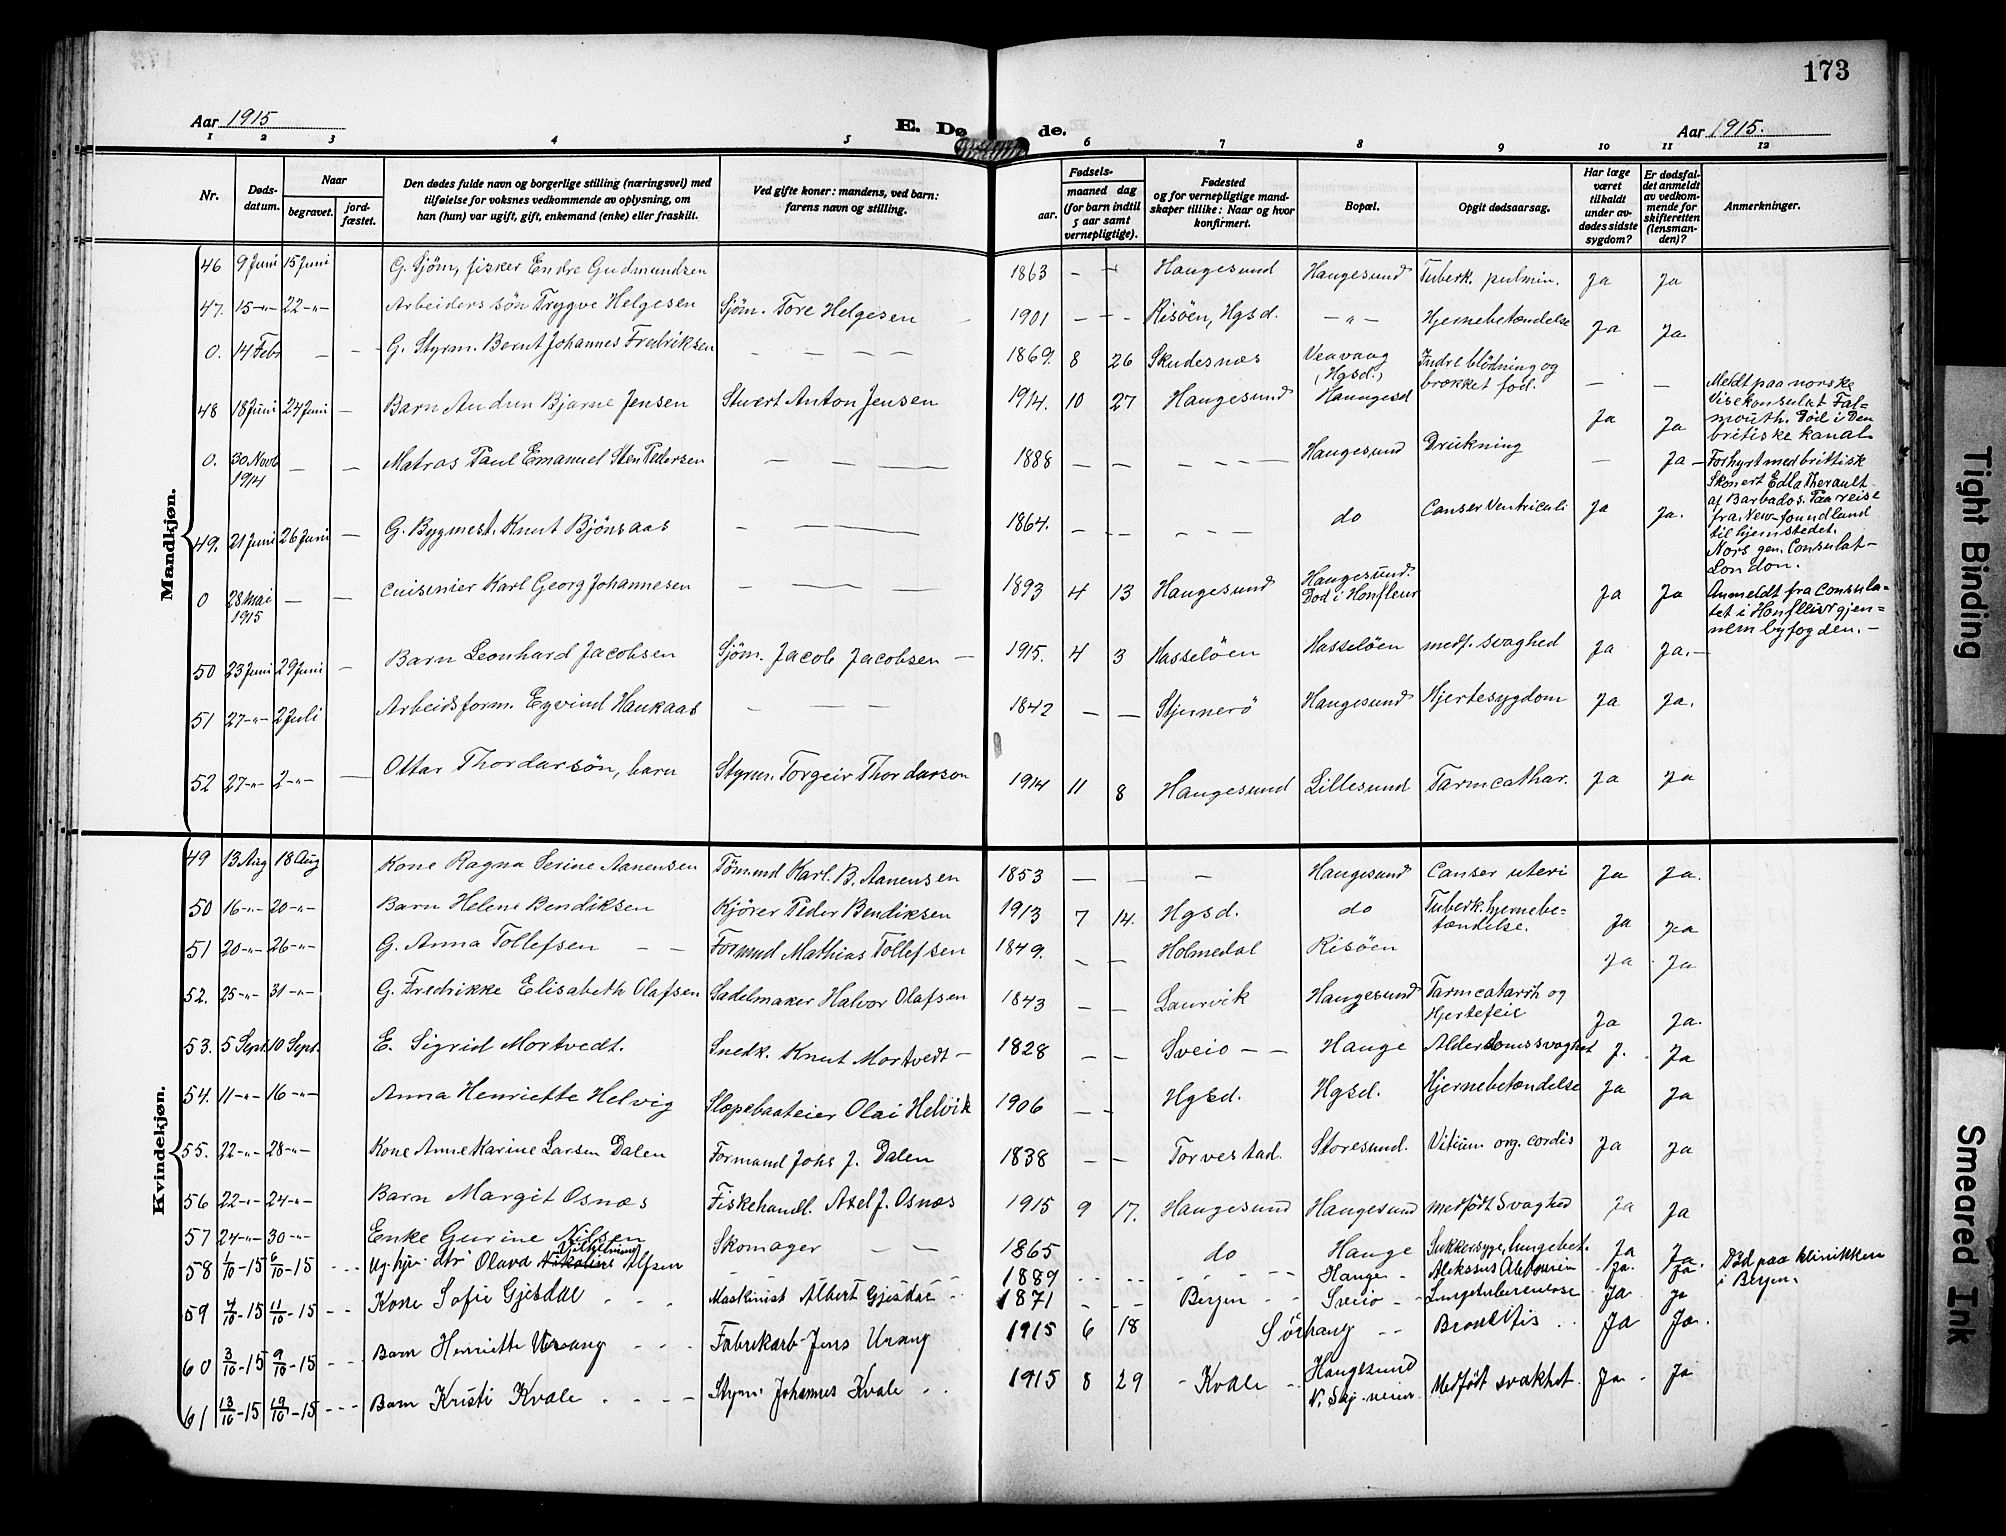 173
Aar 1915
E. Dø de.
Aar 1915.
1 2 3 4 5 6 7 8 9 10 11 12
Nr.
Døds-
datum.
Naar
begravet.
jord-
fæstet.
Den dødes fulde navn og borgerlige stilling (næringsvei) med
tilføielse for voksnes vedkommende av oplysning, om
han (hun) var ugift, gift, enkemand (enke) eller fraskilt.
Ved gifte koner: mandens, ved barn:
farens navn og stilling.
Fødsels-
aar.
maaned dag
(for barn indtil
5 aar samt
vernepligtige).
Fødested
og for vernepligtige mand-
skaper tillike: Naar og hvor
konfirmert.
Bopæl.
Opgit dødsaarsag.
Har læge
været
tilkaldt
under av-
dødes sidste
sygdom?
Er dødsfal-
det anmeldt
av vedkom-
mende for
skifteretten
(lensman-
den)?
Anmerkninger.
Mandkjøn.
46 9 Juni 15 Juni G. Sjøm, fisker Endre Gudmundsen 1863 — — Haugesund Haugesund Tuberk. pulmin. Ja Ja
47. 15 -"- 22 -"- Arbeiders søn Trygve Helgesen Sjöm. Tore Helgesen 1901 — — Risöen, Hgsd. — " — Hjernebetændelse Ja Ja
0. 14 Febr — — G. Styrm. Bernt Johannes Fredriksen — — — — 1869. 8 26 Skudesnæs Veavaag (Hgsd.) Indre blödning og brækket fod. — —
Meldt paa norske
Visekonsulat Fal-
mouth. Död i Den
britiske kanal
48 18 Juni 24 Juni — Barn Audun Bjarne Jensen Stuert Anton Jensen 1914. 10 27 Haugesund Haugesd Ja Ja
0. 30 Novb 1914 — — Matros Paul Emanuel Sten Pedersen — — — 1888 — — — — — Haugesund Drukning — Ja —
Forhyrt med brittisk
Skonert Edla Therault
af Barbados. Paa reise
fra New-foundland
til hjemstedet.
Nors gen. Consulat-
London.
49. 21 Juni 26 Juni — G. Bygmest. Knut Bjönsaas — — — 1864. — — — — — do Canser Ventriculi Ja Ja.
0 28 Mai 1915 — — Cuisinier Karl Georg Johannesen — — — 1893 4 13 Haugesund Haugesund. Död i Honfleur Ja Ja
Anmeldt fra Consula-
tet i Honfleur gjen-
nem byfogden. —
50 23 Juni 29 Juni — Barn Leonhard Jacobsen Sjöm. Jacob Jacobsen — 1915. 4 3 Hasselöen Hasselöen medf. svaghed Ja Ja. —
51 27 -"- 2 Juli Arbeidsform. Eyvind Haukaas — — — 1842 — — Stjernerö Haugesund Hjertesygdom Ja Ja.
52 27 -"- 2 -"- — Ottar Thordarsön, barn Styrm. Torgeir Thordarson 1914 11 8 Haugesund Lillesund Tarmcathar. Ja Ja
Kvindekjøn.
49 13 Aug 18 Aug Kone Ragna Serine Aanensen Karl. B. Aanensen 1853 — — — Haugesund Canser uteri Ja Ja.
50 16 -"- 20 -"- Barn Helene Bendiksen Kjörer Peder Bendiksen 1913 7 14. Hgsd. do Tuberk. hjernebe-
tændelse. Ja Ja
51 20 -"- 26 -"- G. Anna Tollefsen — — Formnd Mathias Tollefsen 1849. — — Holmedal Risöen Ja Ja
52. 25 -"- 31 -"- G. Fredrikke Elisabeth Olafsen Sadelmaker Halvor Olafsen 1843 — — Laurvik Haugesund Tarmcatarrh og
Hjertefeil Ja Ja.
53. 5 Sept. 10 Sept. E. Sigrid Mortvedt. Snedk. Knut Mortvedt — 1828 — — Sveio — — Hauge Alderdomssvaghet J. Ja
54. 11 -"- 16 -"- Anna Henriette Helvig Slæpebaateier Olai Helvik 1906 — — Hgsd. Hgsd. Hjernebetændelse Ja Ja
55. 22 -"- 28 -"- Kone Anne Karine Larsen Dalen Formand Johs J. Dalen 1838 — — Torvestad. Storesund. Vitium org. cordis Ja Ja
56 22 -"- 24 -"- Barn Margit Osnæs Fiskehandl. Axel J. Osnæs 1915 9 17. Haugesund Haugesund medfödt Svaghed Ja Ja
57 24 -"- 30 -"- Enke Gurine Nilsen Skomager — — 1865 do Hauge Sukkersyge, lungebet. Ja Ja.
58 1/10-15 6/10-15 - - - Ug. hjv. dtr Olava Vilhelmine Alfsen 1889 Hauge Ja. Ja. Död paa klinikken
i Bergen.
59 4/10-15 11/10-15 - - Kone Sofie Gjesdal Maskinist Albert Gjesdal 1871 - - - Bergen Sveio Lungetuberculose Ja Ja
60 3/10-15 9/10-15 - - - Barn Henriette Urang Fabrikarb Jens Urang 1915 6 18 Sörhaug Bronkitis Ja Ja.
61 13/10-15 19/10-15 - - - Barn Kristi Kvale Styrm. Johannes Kvale 1915 8 29 Kvale Haugesund Medfödt svakhet. Ja Ja
Tight Binding
Smeared Ink